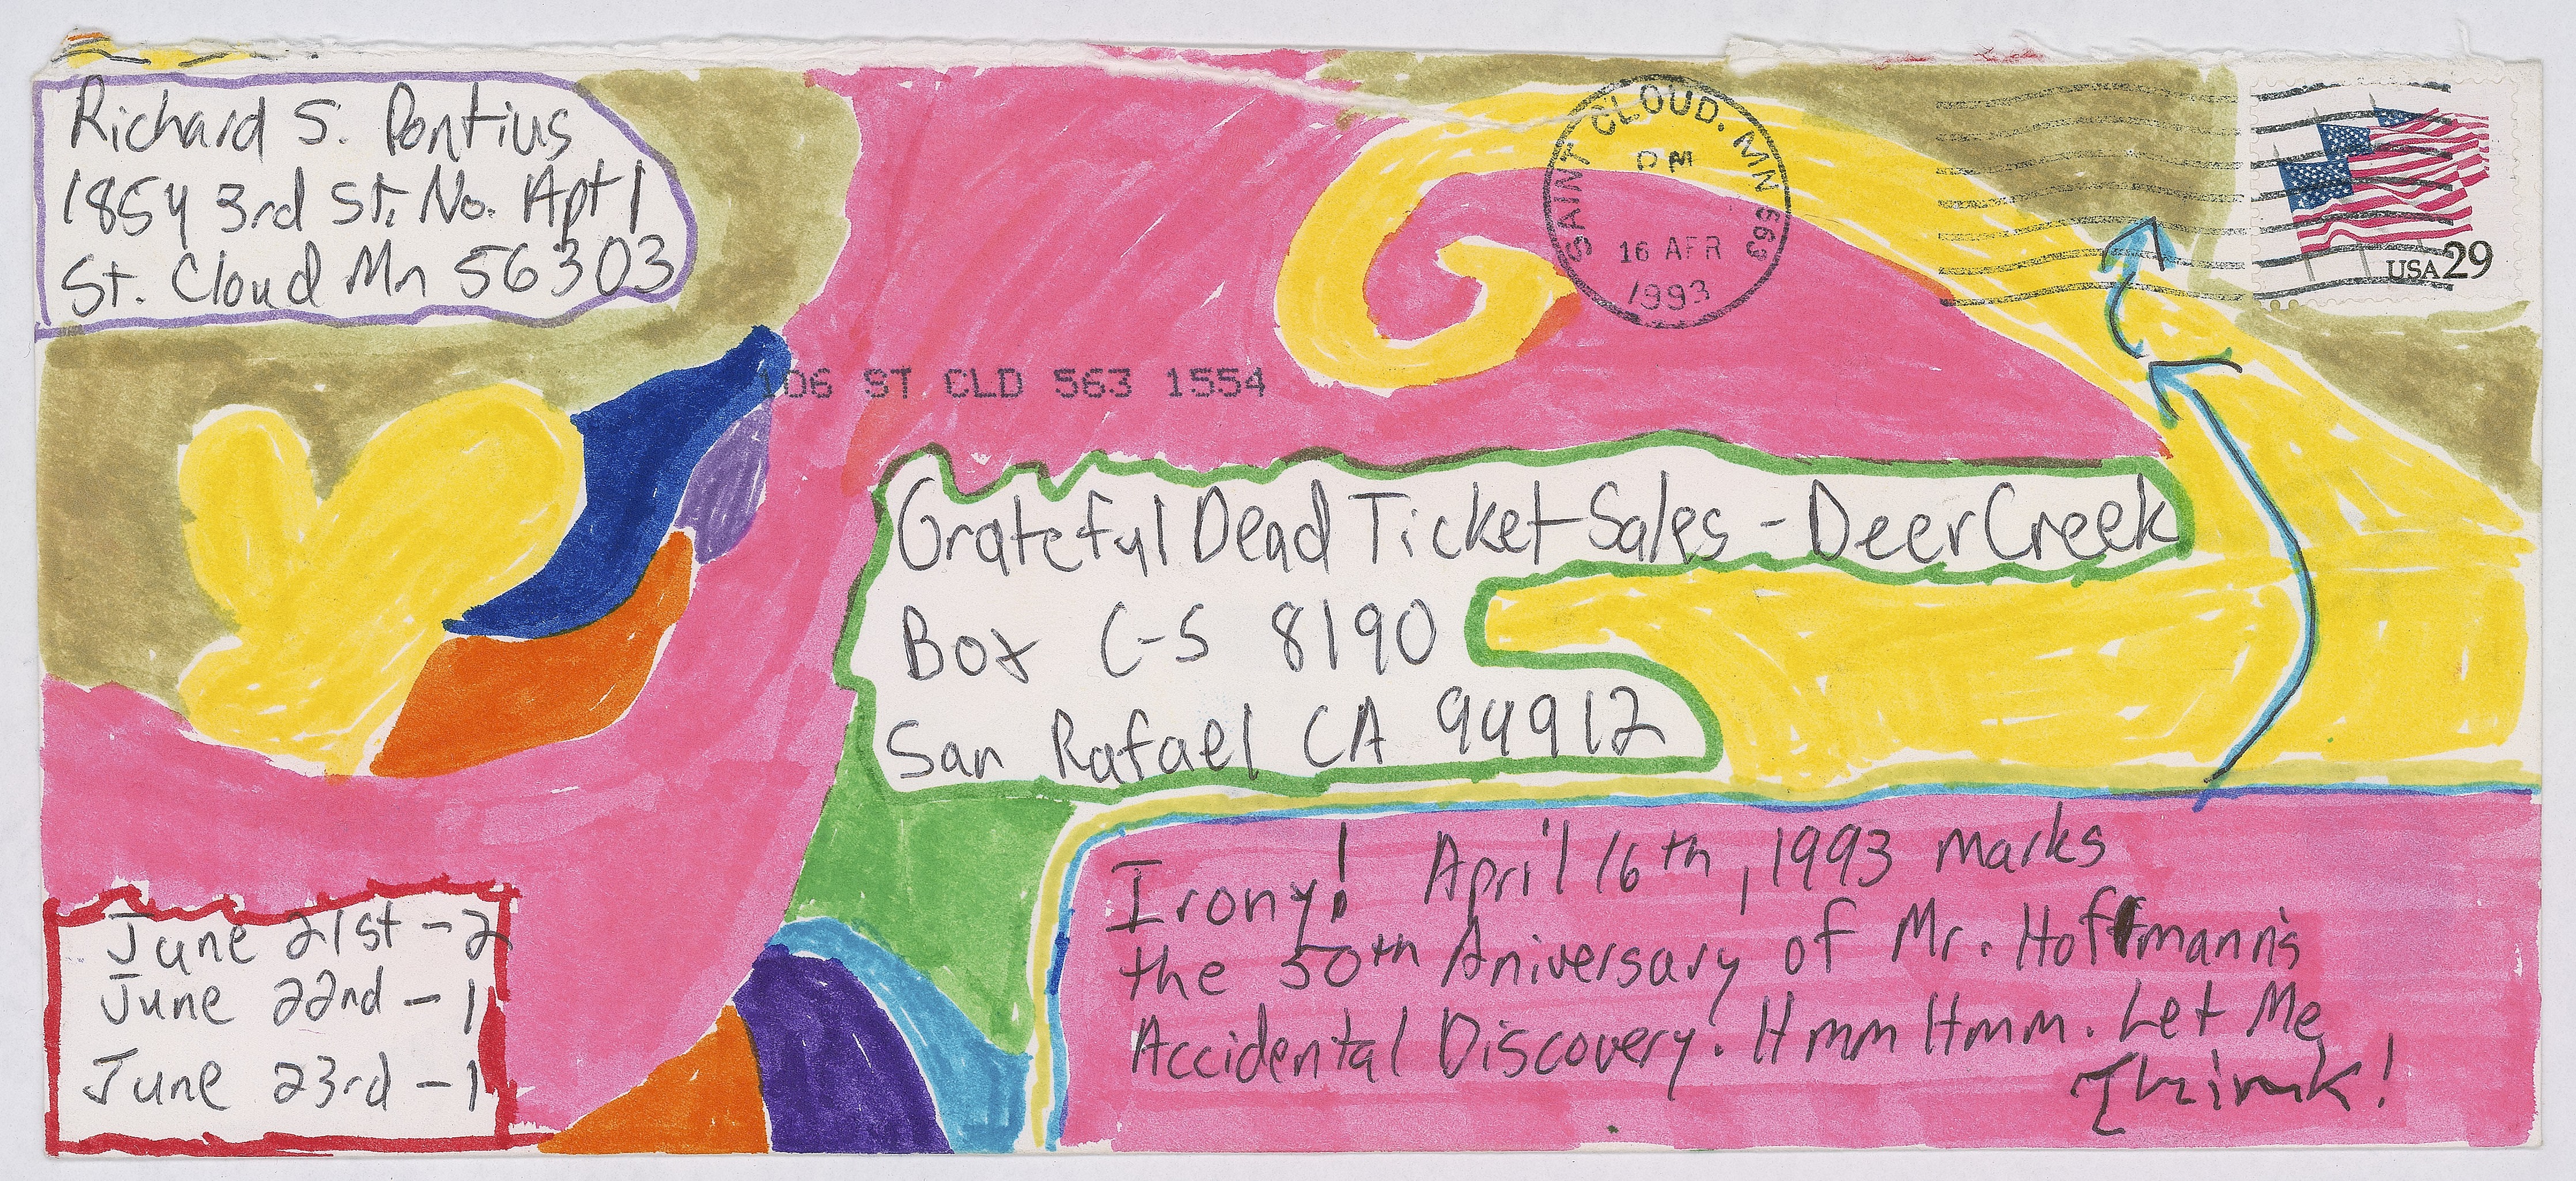 Richard S. Pontius
1854 3rd St. No. Apt 1
St. Cloud Mn 56303
SAINT CLOUD, MN 563
PM
16 APR
1993
USA 29
106 ST CLD 563 1554
Grateful Dead Ticket Sales - Deer Creek
Box C-S 8190
San Rafael CA 94912
June 21st - 2
June 22nd - 1
June 23rd - 1
Irony! April 16th, 1993 marks
the 50th Aniversary of Mr. Hoffmann's
Accidental Discovery. Hmm Hmm. Let Me
Think!